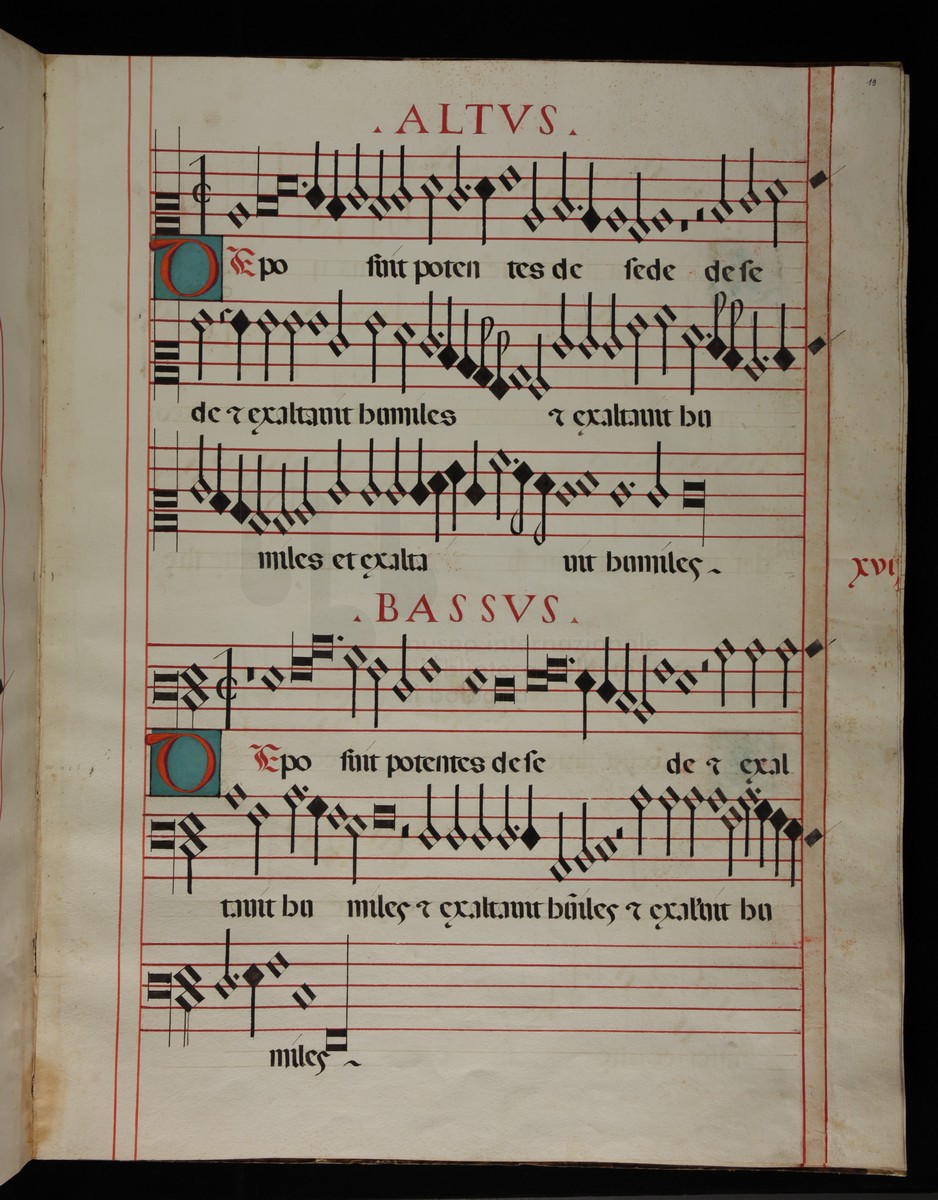 19
.ALTVS.
DEpo suit poten tes de sede de se
de ⁊ exaltauit humiles ⁊ exaltauit hu
miles et exalta uit humiles
xvij
.BASSVS.
DEpo suit potentes de se de ⁊ exal
tauit hu miles ⁊ exaltauit hũiles ⁊ exal'uit hu
miles